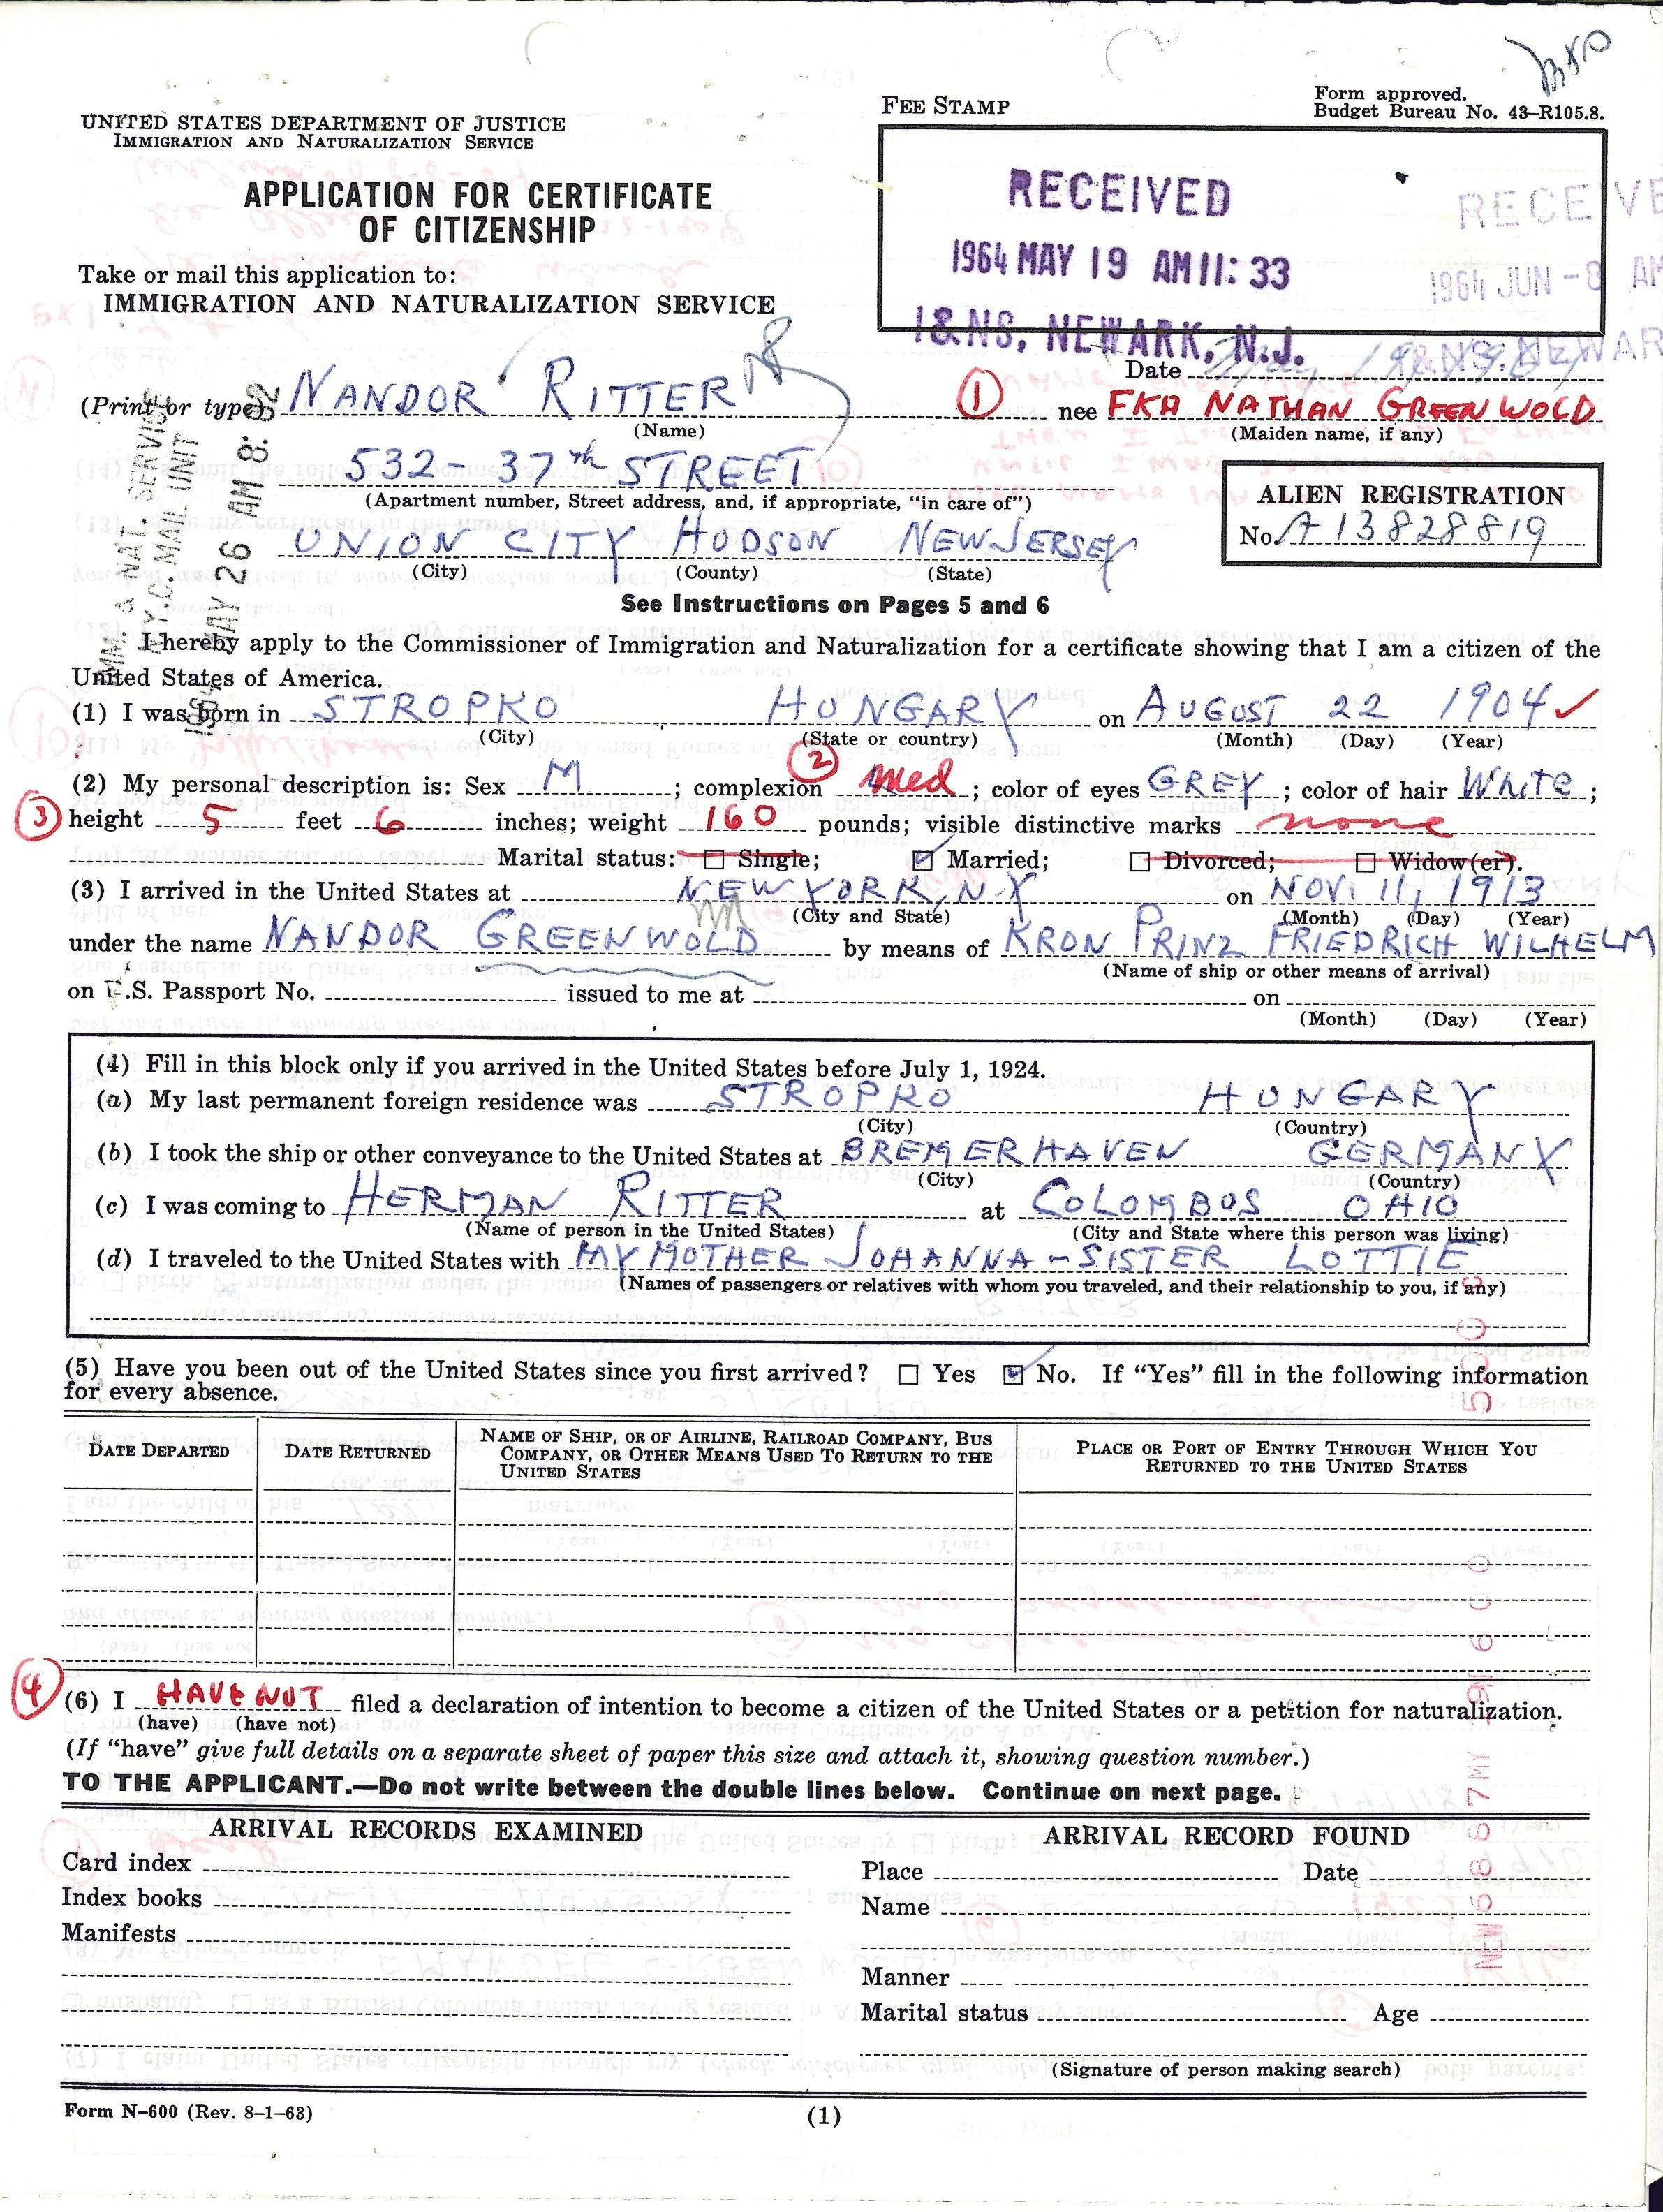 Form approved.
Budget Bureau No. 43–R105.8.
FEE STAMP
UNITED STATES DEPARTMENT OF JUSTICE
IMMIGRATION AND NATURALIZATION SERVICE
APPLICATION FOR CERTIFICATE
OF CITIZENSHIP
RECEIVED
1964 MAY 19 AM 11:33
I&NS, NEWARK, N.J.
RECEIVE
1964 JUN -8 AM
I&NS. NEWAR
Take or mail this application to:
IMMIGRATION AND NATURALIZATION SERVICE
Date
(Print or type) NANDOR RITTER 1 nee FKA NATHAN GREENWOLD
(Name) (Maiden name, if any)
532 - 37th STREET
(Apartment number, Street address, and, if appropriate, “in care of”)
ALIEN REGISTRATION
No. A 13828819
UNION CITY HUDSON NEW JERSEY
(City) (County) (State)
IMM. & NAT. SERVICE
N.Y.C. MAIL UNIT
1964 MAY 26 AM 8:
See Instructions on Pages 5 and 6
I hereby apply to the Commissioner of Immigration and Naturalization for a certificate showing that I am a citizen of the
United States of America.
(1) I was born in STROPKO HUNGARY on AUGUST 22 1904
(City) (State or country) (Month) (Day) (Year)
2
(2) My personal description is: Sex M; complexion Med; color of eyes GREY; color of hair White;
3 height 5 feet 6 inches; weight 160 pounds; visible distinctive marks none
Marital status: ☐ Single; ☑ Married; ☐ Divorced; ☐ Widow(er).
(3) I arrived in the United States at NEW YORK, N.Y. on NOV. 11, 1913
(City and State) (Month) (Day) (Year)
under the name NANDOR GREENWOLD by means of KRON PRINZ FRIEDRICH WILHELM
(Name of ship or other means of arrival)
on U.S. Passport No. issued to me at on
(Month) (Day) (Year)
(4) Fill in this block only if you arrived in the United States before July 1, 1924.
(a) My last permanent foreign residence was STROPKO HUNGARY
(City) (Country)
(b) I took the ship or other conveyance to the United States at BREMERHAVEN GERMANY
(City) (Country)
(c) I was coming to HERMAN RITTER at COLOMBUS OHIO
(Name of person in the United States) (City and State where this person was living)
(d) I traveled to the United States with MY MOTHER JOHANNA - SISTER LOTTIE
(Names of passengers or relatives with whom you traveled, and their relationship to you, if any)
(5) Have you been out of the United States since you first arrived? ☐ Yes ☑ No. If “Yes” fill in the following information
for every absence.
DATE DEPARTED
DATE RETURNED
NAME OF SHIP, OR OF AIRLINE, RAILROAD COMPANY, BUS
COMPANY, OR OTHER MEANS USED TO RETURN TO THE
UNITED STATES
PLACE OR PORT OF ENTRY THROUGH WHICH YOU
RETURNED TO THE UNITED STATES
4 (6) I HAVE NOT filed a declaration of intention to become a citizen of the United States or a petition for naturalization.
(have) (have not)
(If “have” give full details on a separate sheet of paper this size and attach it, showing question number.)
TO THE APPLICANT.—Do not write between the double lines below. Continue on next page.
ARRIVAL RECORDS EXAMINED
Card index
Index books
Manifests
ARRIVAL RECORD FOUND
Place Date
Name
Manner
Marital status Age
(Signature of person making search)
Form N–600 (Rev. 8–1–63)
(1)